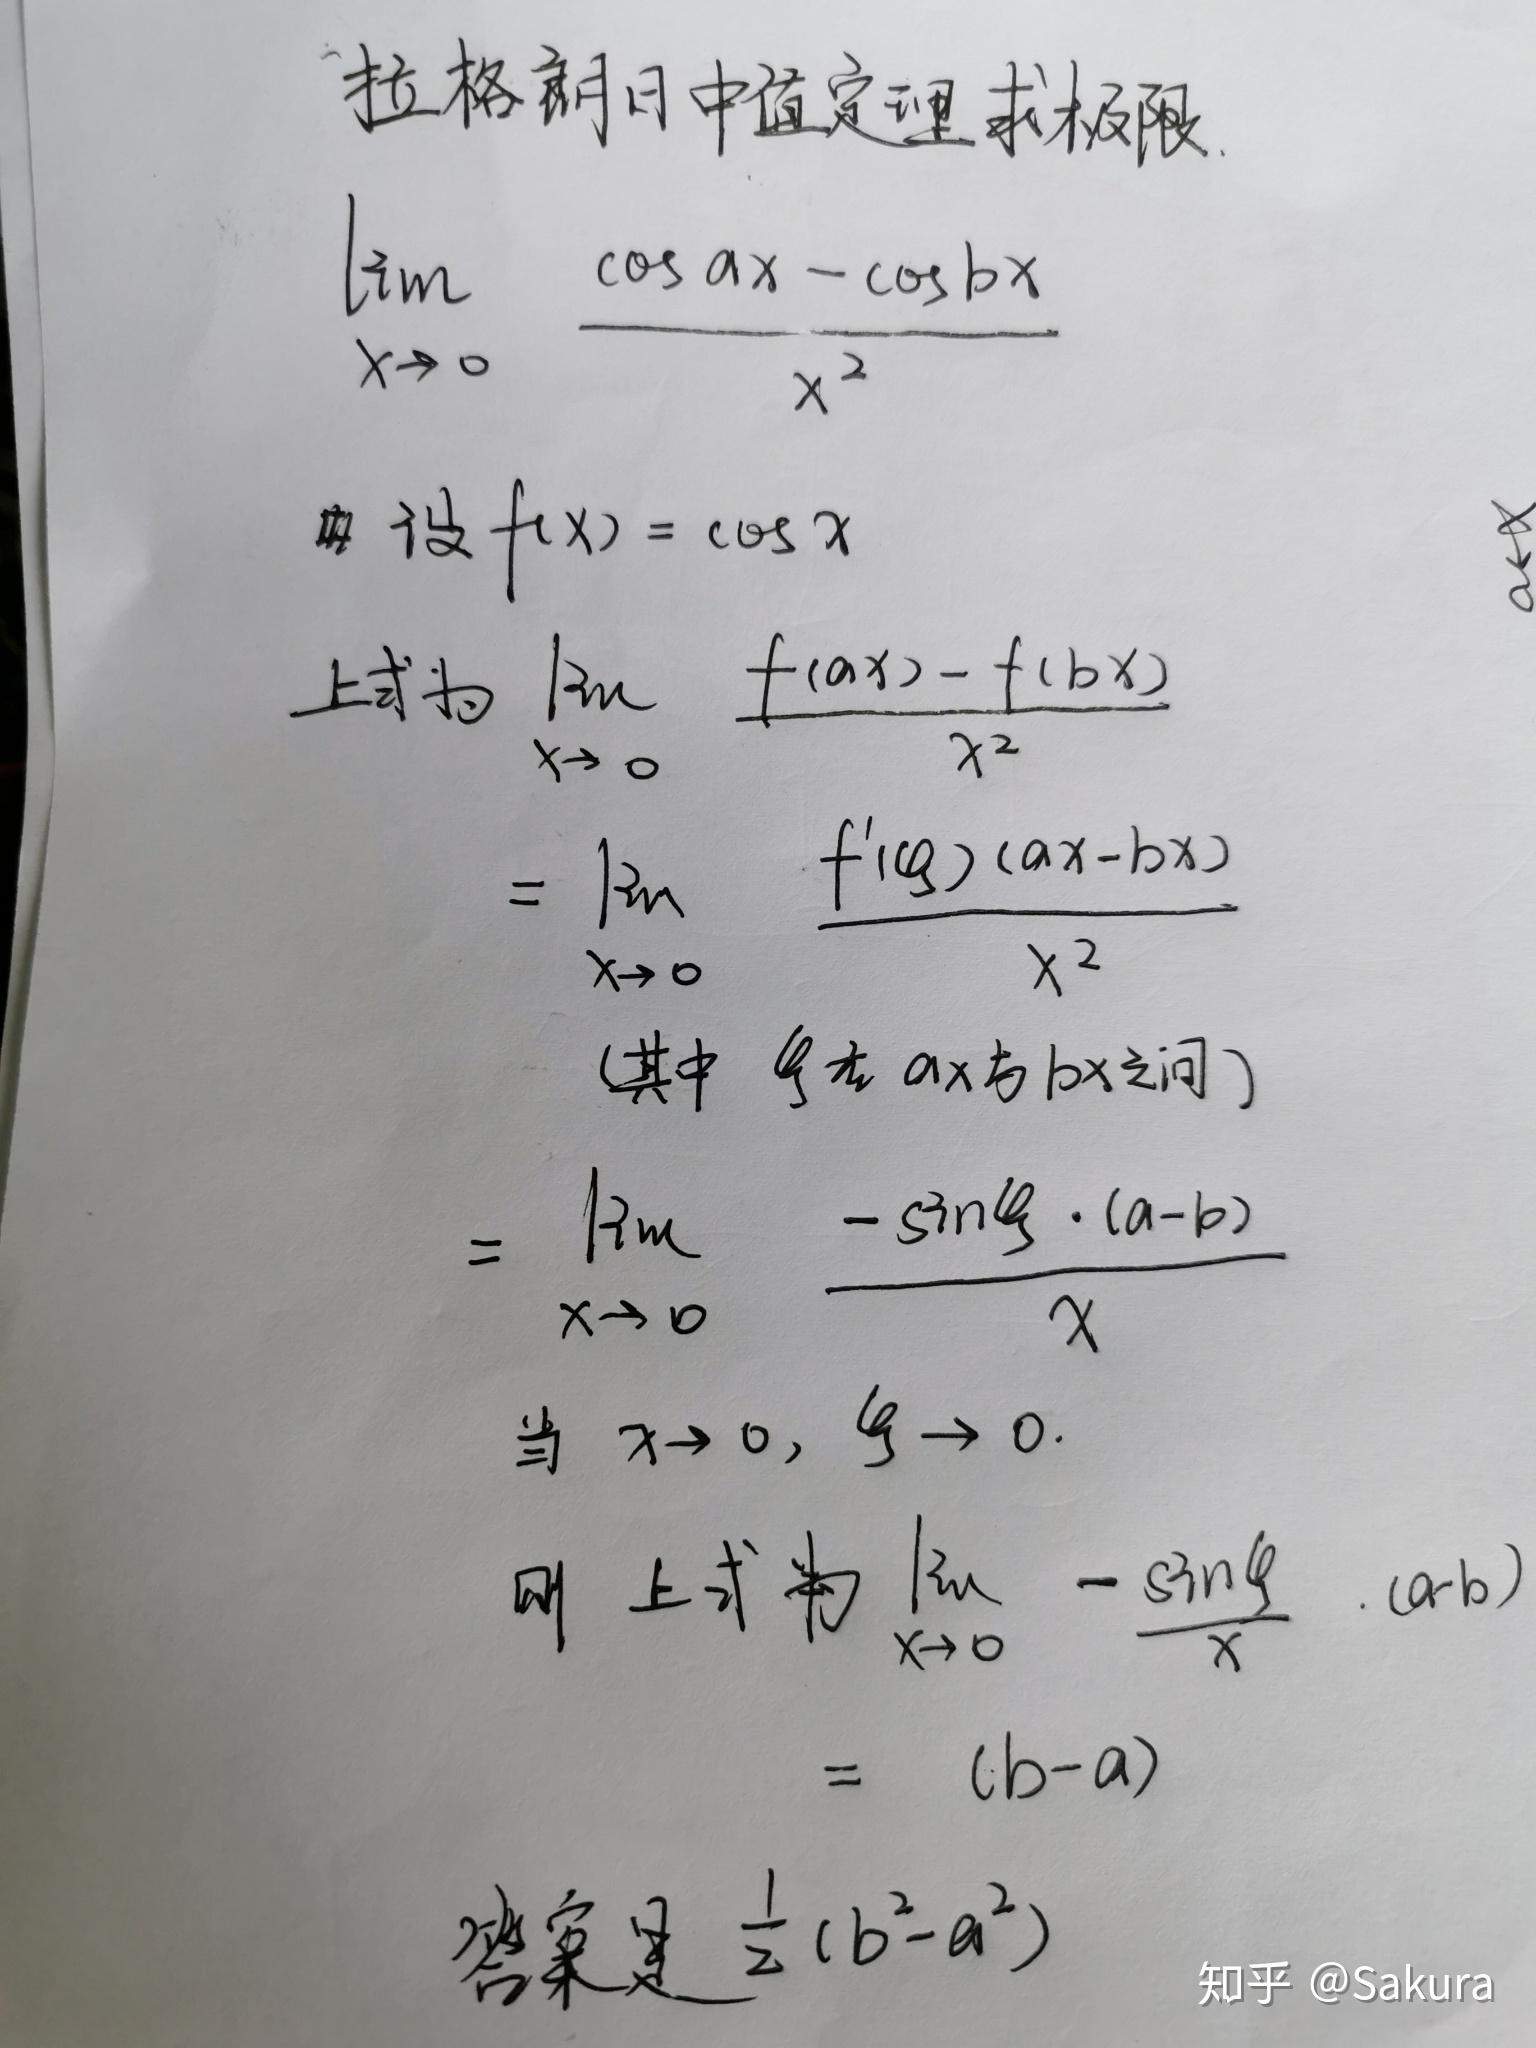 拉格朗日中值定理求极限.
lim cosax - cosbx
x→0 x²
设 f(x) = cosx
上式为 lim f(ax) - f(bx)
x→0 x²
= lim f'(ξ)(ax-bx)
x→0 x²
(其中 ξ在 ax与bx之间)
= lim -sinξ·(a-b)
x→0 x
当 x→0, ξ→0.
则 上式为 lim - sinξ ·(a-b)
x→0 x
= (b-a)
答案是 1/2 (b²-a²)
知乎 @Sakura